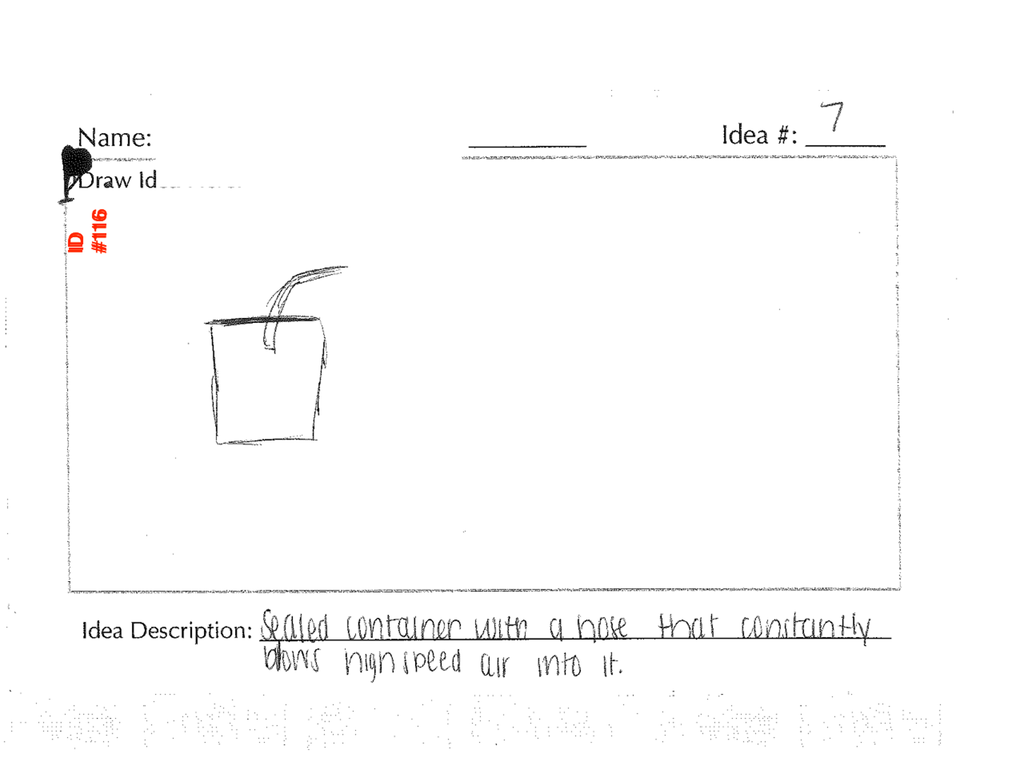 Name:
Idea #: 7
Draw Id
ID
#116
Idea Description: Sealed container with a hose that constantly
blows high speed air into it.